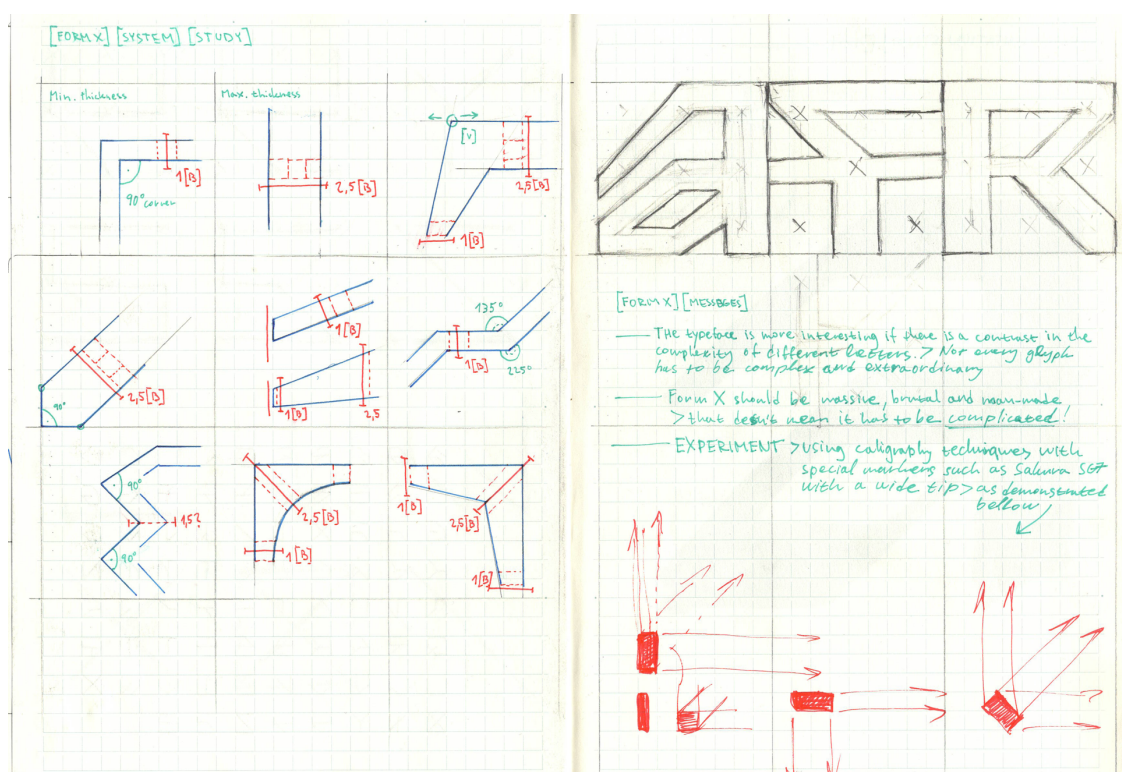 [FORM X] [SYSTEM] [STUDY]
Min. thickness
Max. thickness
1[B]
90° corner
2,5[B]
[V]
2,5[B]
1[B]
90°
2,5[B]
1[B]
1[B]
2,5
135°
1[B]
225°
90°
1,5?
90°
2,5[B]
1[B]
1[B]
2,5[B]
1[B]
ATR
[FORM X] [MESSAGES]
— THE typeface is more interesting if there is a contrast in the
complexity of different letters. > Not every glyph
has to be complex and extraordinary
— Form X should be massive, brutal and man-made
> that doesn't mean it has to be complicated!
— EXPERIMENT > using caligraphy techniques with
special markers such as Sakura
with a wide tip > as demonstrated
bellow